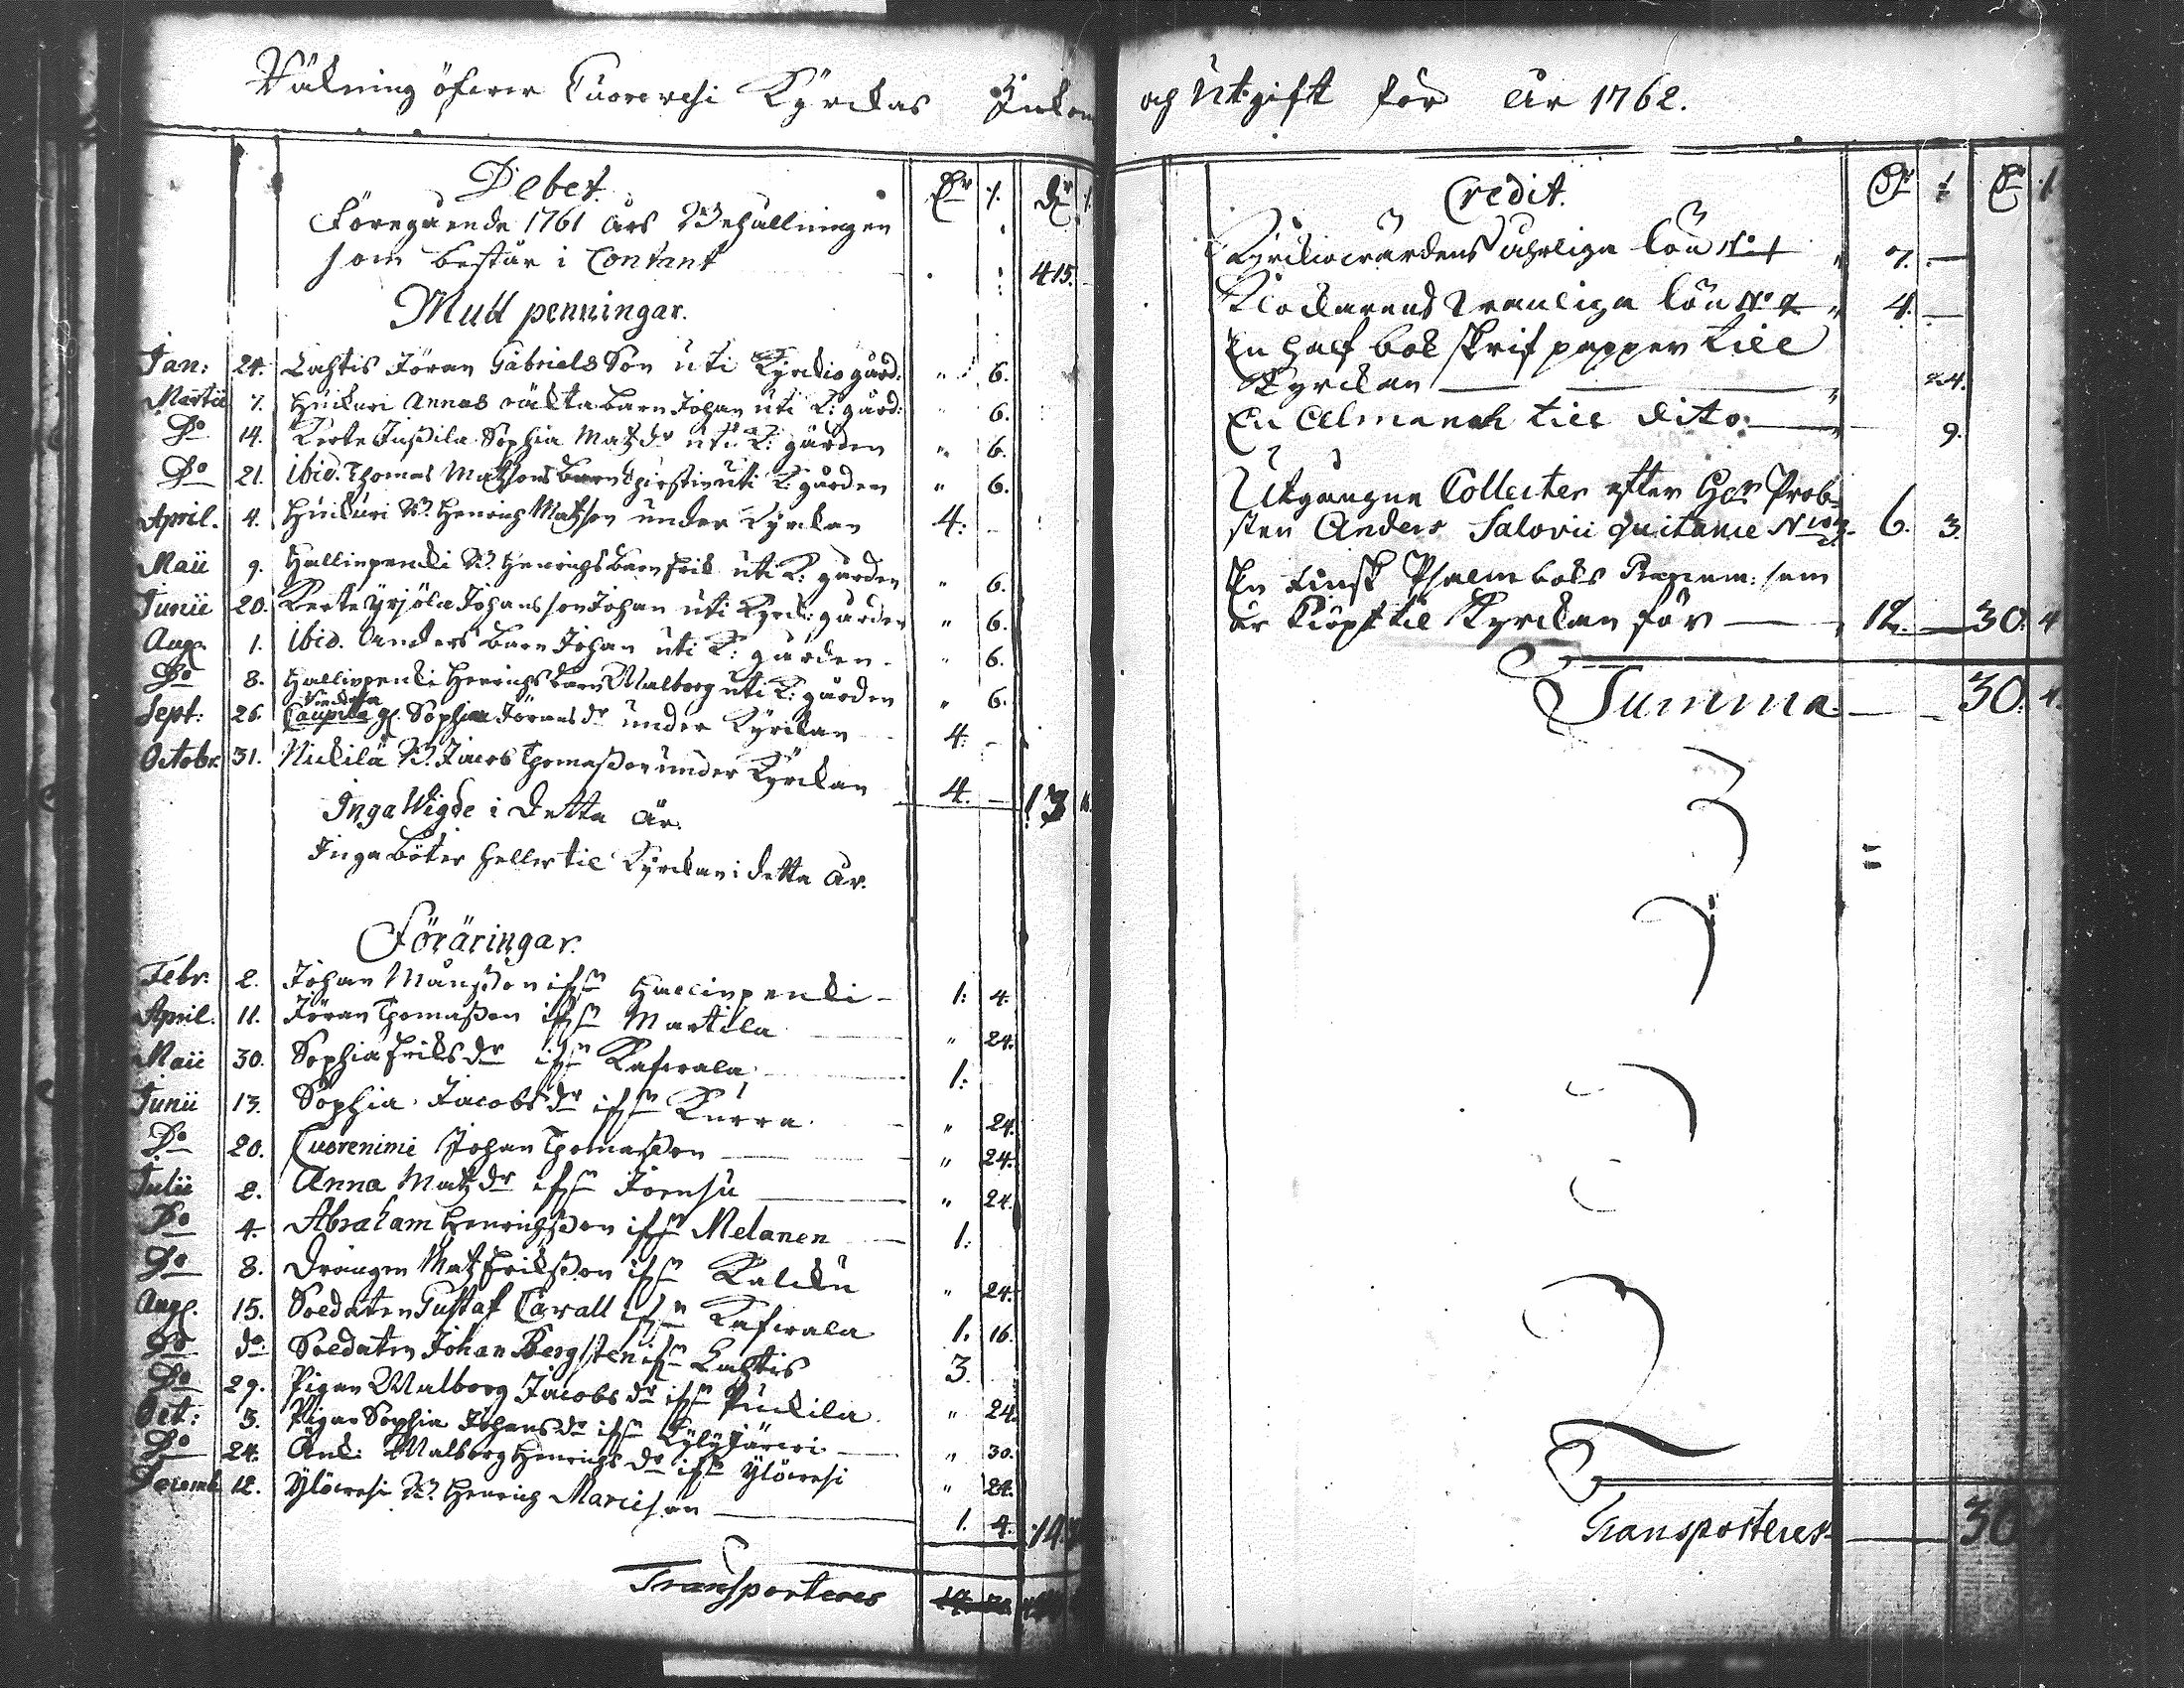 Räkning öfwer Cuorevesi Kyrckas Inkom
och Utgift för År 1762.
Debet.
Dr :/. Dr :/.
Föregående 1761 års Behållningen
som består i Contant 415.
Mull penningar.
Jan: 24. Lahtis Jöran Gabriels Son uti Kyrckio gård: " 6.
Martii 7. Huikuri Annas oäkta barn Johan uti K: gård: " 6.
Do 14. Kerte Jussila Sophia Matz dr uti K: gården " 6.
Do 21. ibid. Thomas Matsons barn Christin uti K: gården " 6.
April. 4. Huikuri Henrich Matson under Kyrckan 4: –
Maii 9. Hallinpenki Henrichs barn Erik uti K: gården " 6.
Junii 20. Kerte Yrjölä Johans son Johan uti Kyrck: gården " 6.
Aug. 1. ibid. Anders barn Johan uti K: gården " 6.
Do 8. Hallinpenki Henrichs barn Walborg uti K: gården " 6.
Sept: 26. Caupila Sophia Jörans dr under Kyrckan 4: –
Octobr. 31. Nickilä Jacob Thomasson under Kyrckan 4. – 13
Inga Wigde i detta år.
Inga böter heller til Kyrckan i detta År.
Föräringar.
Febr. 2. Johan Månsson ifrn Hallinpenki – 1: 4.
April. 11. Jöran Thomasson ifrn Martila " 24.
Maii 30. Sophia Eriks dr ifrn Kafwala 1:
Junii 13. Sophia Jacobs dr ifrn Kurra " 24.
Do 20. Cuorenimi Johan Thomasson " 24.
Julii 2. Anna Matz dr ifrn Joensu " 24.
Do 4. Abraham Henrichsson ifrn Melanen 1:
Do 8. Drängen Matz Eriksson ifrn Kalcku " 24.
Aug. 15. Soldaten Gustaf Carall ifrn Kafwala 1. 16.
Do do Soldaten Johan Bergsten ifrn Lahtis 3.
Do 29. Pigan Walborg Jacobs dr ifrn Puckila " 24.
Oct: 3. Pigan Sophia Johans dr ifrn Kylyjärwi " 30.
Do 24. Änk: Walborg Henrichs dr ifrn Ylöwesi " 24.
Decemb. 12. Ylöwesi Henrich Marcison 1. 4. 14.
Transporteres
Credit.
Dr :/. Dr :/.
Kyrckiowärdens åhrliga lön No 1 " 7. –
Klockarens vanliga lön No 2 " 4. –
En half bok skrif papper till
Kyrckan " 24.
En Almanach till dito " 9.
Utgångne Collecter efter Herr Prob-
sten Anders Salovii quitance No 3. 6. 3.
En Finsk Psalmboks som
är kiöpt til Kyrckan för 12. – 30. 4
Summa – 30. 4.
Transporteres – 30